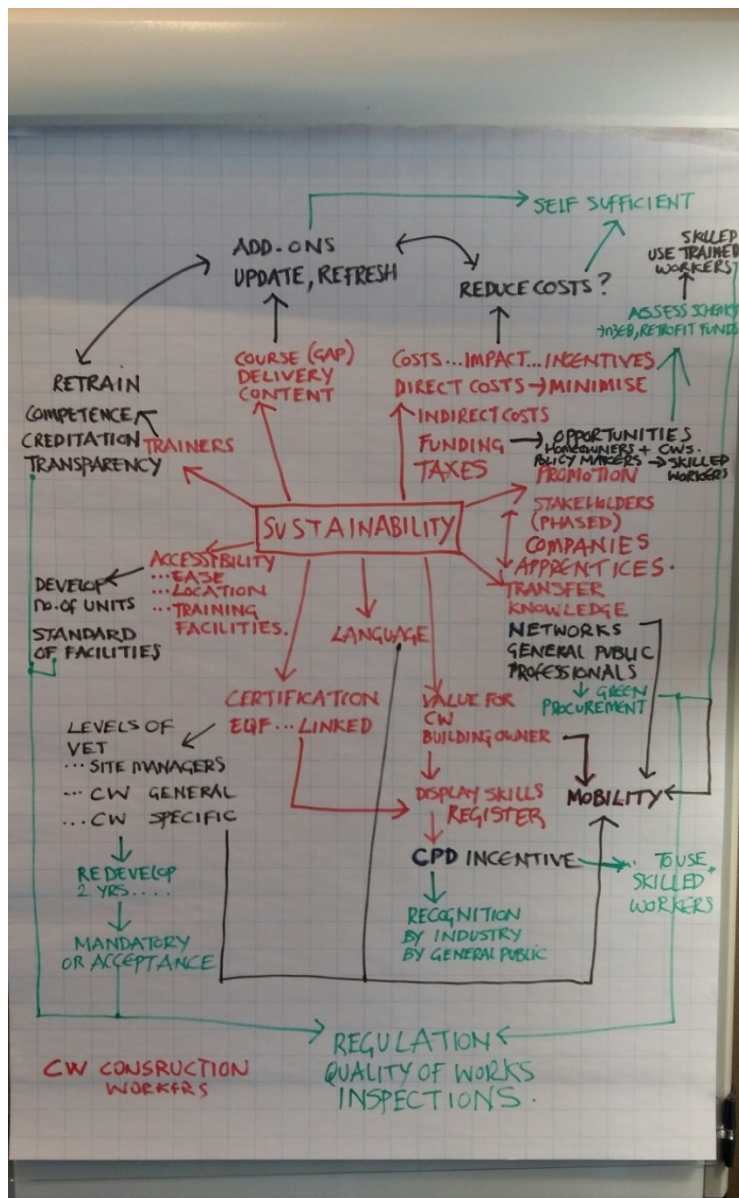 SELF SUFFICIENT
ADD-ONS
UPDATE, REFRESH
SKILLED
USE TRAINED
WORKERS
REDUCE COSTS?
ASSESS
RETROFIT FUNDS
COURSE (GAP)
DELIVERY
CONTENT
COSTS...IMPACT...INCENTIVES
DIRECT COSTS → MINIMISE
INDIRECT COSTS
FUNDING →
TAXES
OPPORTUNITIES
HOMEOWNERS + CWS.
POLICY MAKERS → SKILLED
WORKERS
RETRAIN
COMPETENCE
CREDITATION
TRANSPARENCY
TRAINERS
PROMOTION
STAKEHOLDERS
(PHASED)
COMPANIES
APPRENTICES.
TRANSFER
KNOWLEDGE
NETWORKS
GENERAL PUBLIC
PROFESSIONALS
GREEN
PROCUREMENT
SUSTAINABILITY
ACCESSIBILITY
...EASE
...LOCATION
...TRAINING
FACILITIES.
DEVELOP
no. OF UNITS
STANDARD
OF FACILITIES
LANGUAGE
CERTIFICATION
EQF...LINKED
LEVELS OF
VET
...SITE MANAGERS
...CW GENERAL
...CW SPECIFIC
REDEVELOP
2 YRS....
MANDATORY
OR ACCEPTANCE
VALUE FOR
CW
BUILDING OWNER
DISPLAY SKILLS
REGISTER
MOBILITY
CPD INCENTIVE
TO USE
SKILLED
WORKERS
RECOGNITION
BY INDUSTRY
BY GENERAL PUBLIC
REGULATION
QUALITY OF WORKS
INSPECTIONS.
CW CONSRUCTION
WORKERS